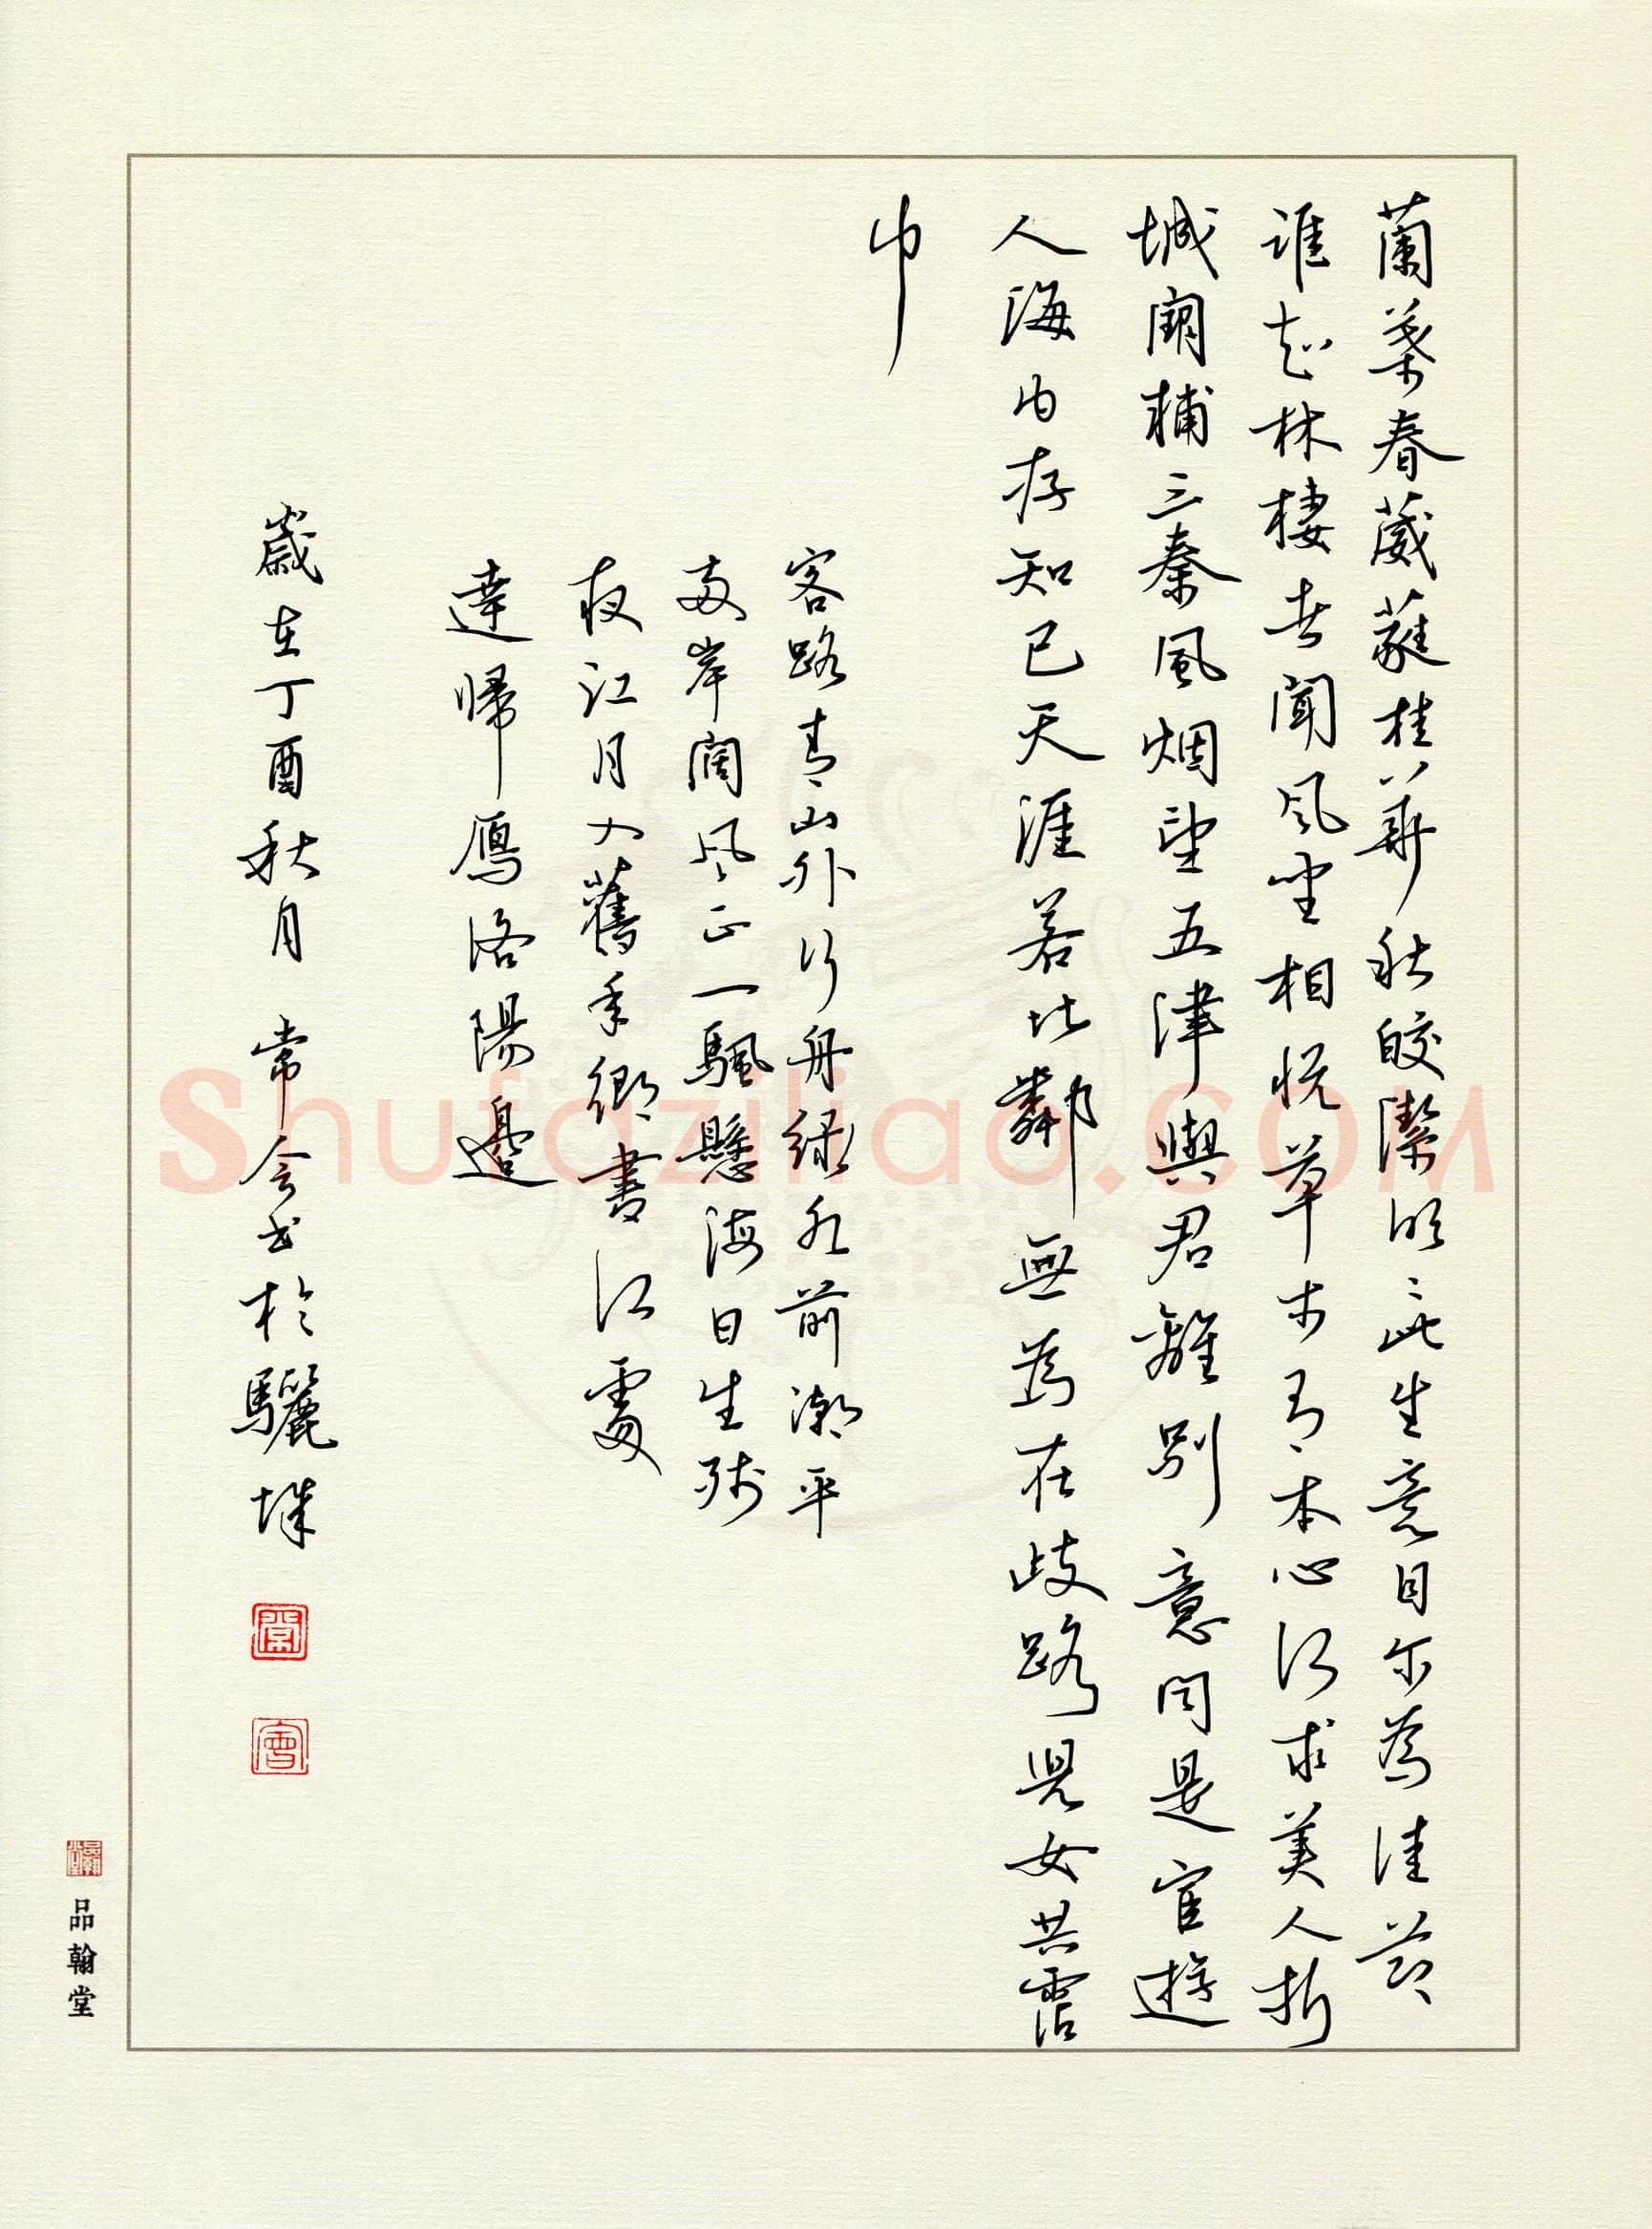 蘭葉春葳蕤桂華秋皎潔欣〻此生意自尔為佳節
誰知林棲者聞風坐相悅草木有本心何求美人折
城闕輔三秦風烟望五津與君離別意同是宦遊
人海內存知己天涯若比鄰無為在歧路兒女共霑
巾
客路青山外行舟綠水前潮平
兩岸闊風正一颿懸海日生殘
夜江月入舊年鄉書何處
達歸鴈洛陽邊
歲在丁酉秋月 常會書於驪城
常
會
品翰堂
品翰堂
Shufaziliao.com